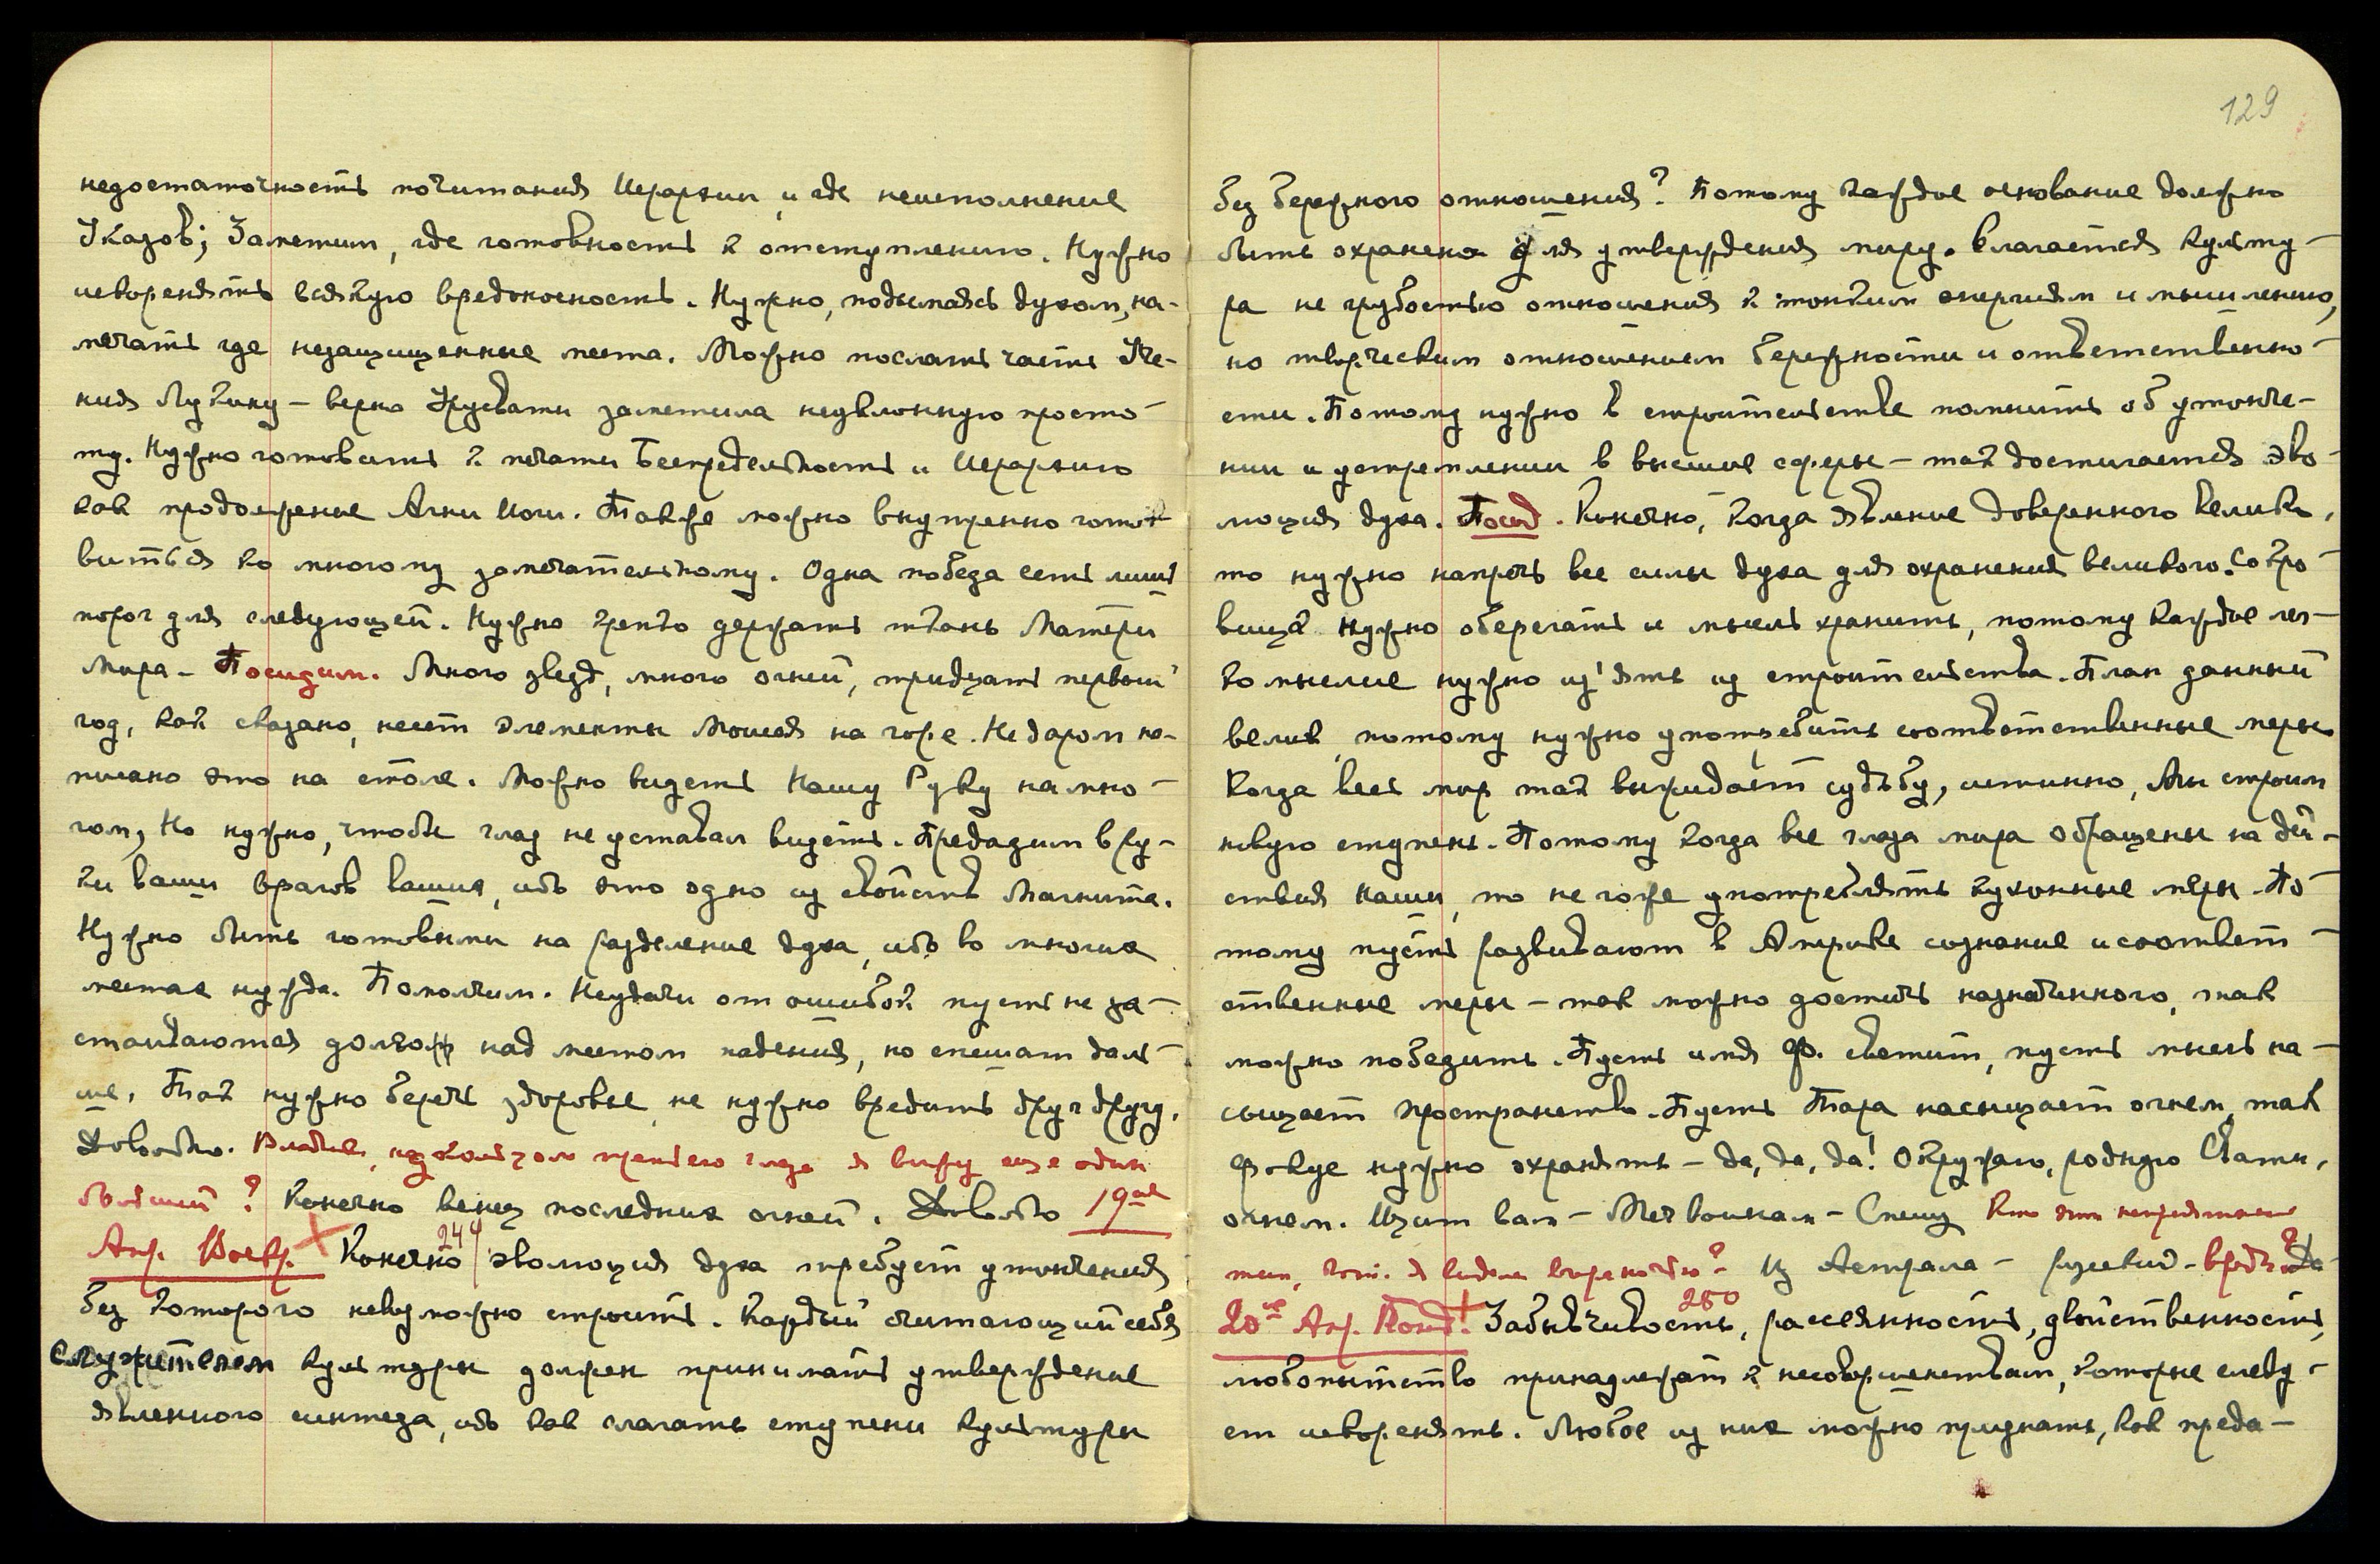 недостаточность почитания Иерархии, и где неисполнение
Указов; Заметим, где готовность к отступлению. Нужно
искоренять всякую вредоносность. Нужно, подымаясь духом, на-
мечать где незащищенные места. Можно послать часть Уче-
ния Лукину – верно Урусвати заметила неуклонную просто-
ту. Нужно готовить к печати Беспредельность и Иерархию
как продолжение Агни Йоги. Также можно внутренно гото-
виться ко многому замечательному. Одна победа есть лишь
порог для следующей. Нужно крепко держать ткань Матери
Мира – Посидим. Много звезд, много огней, тридцать первый
год, как сказано, несет элементы Моисея на горе. Недаром на-
писано это на столе. Можно видеть Нашу Руку на мно-
гом, Но нужно, чтобы глаз не уставал видеть. Предадим в ру-
ки ваши врагов ваших, ибо это одно из свойств Магнита.
Нужно быть готовыми на разделение духа, ибо во многих
местах нужда. Помолчим. Неудачи от ошибок пусть не за-
стаиваются долго над местом падения, но спешат даль-
ше. Так нужно беречь здоровье, не нужно вредить друг другу.
Довольно. Владыка, над кольцом третьего глаза я вижу еще один
больший? Конечно венец последних огней. Довольно 19ое
Апр. Воскр. 244 Конечно эволюция духа требует утончения
без которого невозможно строить. Каждый считающий себя
служителем культуры должен принимать утверждение
явленного синтеза, ибо как слагать ступени культуры
129
без бережного отношения? Потому каждое основание должно
быть охранено для утверждения миру. Слагается культу-
ра не грубостью отношения к тонким энергиям и мышлению,
но творческим отношением бережности и ответственно-
сти. Потому нужно в строительстве помнить об утонче-
нии и устремлении в высшие сферы – так достигается эво-
люция духа. Посид. Конечно, когда явление доверенного велико,
то нужно напречь все силы духа для охранения великого. Сокро-
вища нужно оберегать и мысль хранить, потому каждое лег-
комыслие нужно из'ять из строительства. План данный
велик, потому нужно употребить соответственные меры
Когда весь мир так выжидает судьбу, истинно, Мы строим
новую ступень. Потому когда все глаза мира обращены на дей-
ствия наши, то не гоже употреблять кухонные меры. По-
тому пусть развивают в Америке сознание и соответ-
ственные меры – так можно достичь назначенного, так
можно победить. Пусть имя Ф. светит, пусть мысль на-
сыщает пространство. Пусть Тара насыщает огнем, так
фокус нужно охранять – да, да, да! Окружаю, родную Свати,
огнем. Щит вам – Меч воинам – Спешу Кто эти неприятные
типы, кот. я видела вчера ночью? Из Астрала – вред?
20ое Апр. Понед. 250 Забывчивость, рассеянность, двойственность,
любопытство принадлежат к несовершенствам, которые следу-
ет искоренять. Любое из них можно признать, как преда-